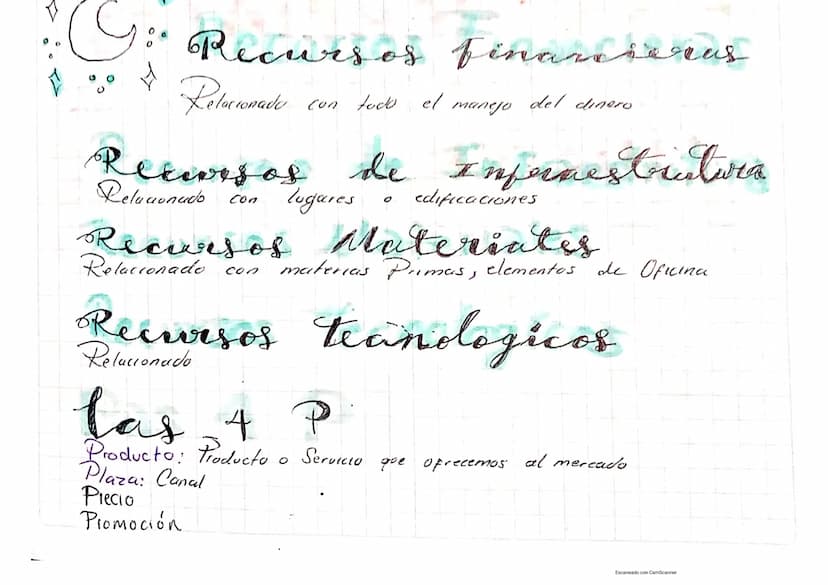 Recursos Financieros
Relacionado con todo el manejo del dinero
Recursos de Infraestrutura
Relacionado con lugares o edificaciones
Recursos Materiales
Relacionado con materias Primas, elementos de Oficina
Recursos Tecnologicos
Relacionado
Las 4 P
Producto: Producto o Servicio que ofrecemos al mercado
Plaza: Canal
Precio
Promoción
Escaneado con CamScanner